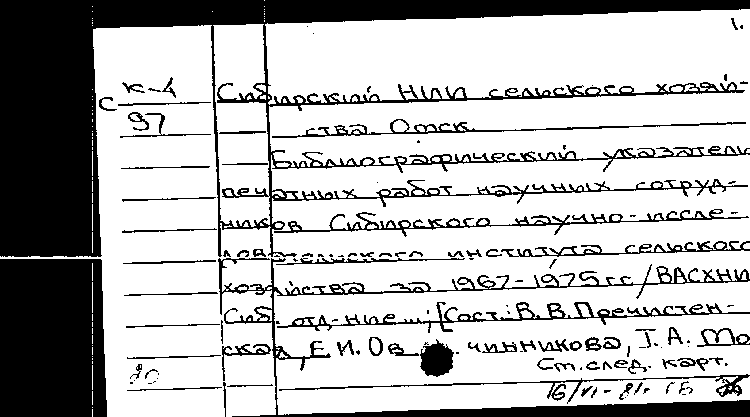 1.
К-4 Сибирский НИИ сельского хозяй-
С
97 ства. Омск.
Библиографический указатель
печатных работ научных сотруд-
ников Сибирского научно-иссле-
довательского института сельского
хозяйства за 1967-1975гг/ВАСХНИ
Сиб. отд-ние...; [Сост.: В.В.Пречистен-
ская, Е.И.Ов чинникова, Т.А. Мо
20 См.след. карт.
16/VI-81г.